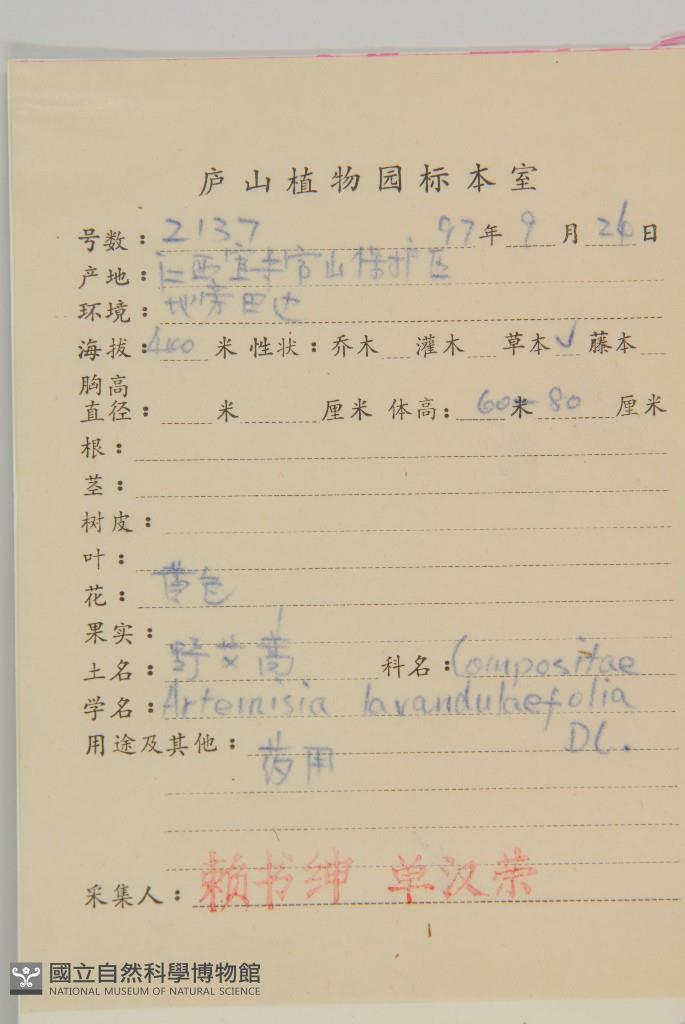 庐山植物园标本室
号数：2137 97年9月26日
产地：江西宜丰官山保护区
环境：地旁田边
海拔：400米 性状：乔木 灌木 草本✓ 藤本
胸高
直径： 米 厘米 体高： 60米80 厘米
根：
茎：
树皮：
叶：
花：黄色
果实：
土名：野艾蒿 科名：Compositae
学名：Artemisia lavandulaefolia
用途及其他：药用 DC.
采集人：赖书绅 单汉荣
國立自然科學博物館
NATIONAL MUSEUM OF NATURAL SCIENCE